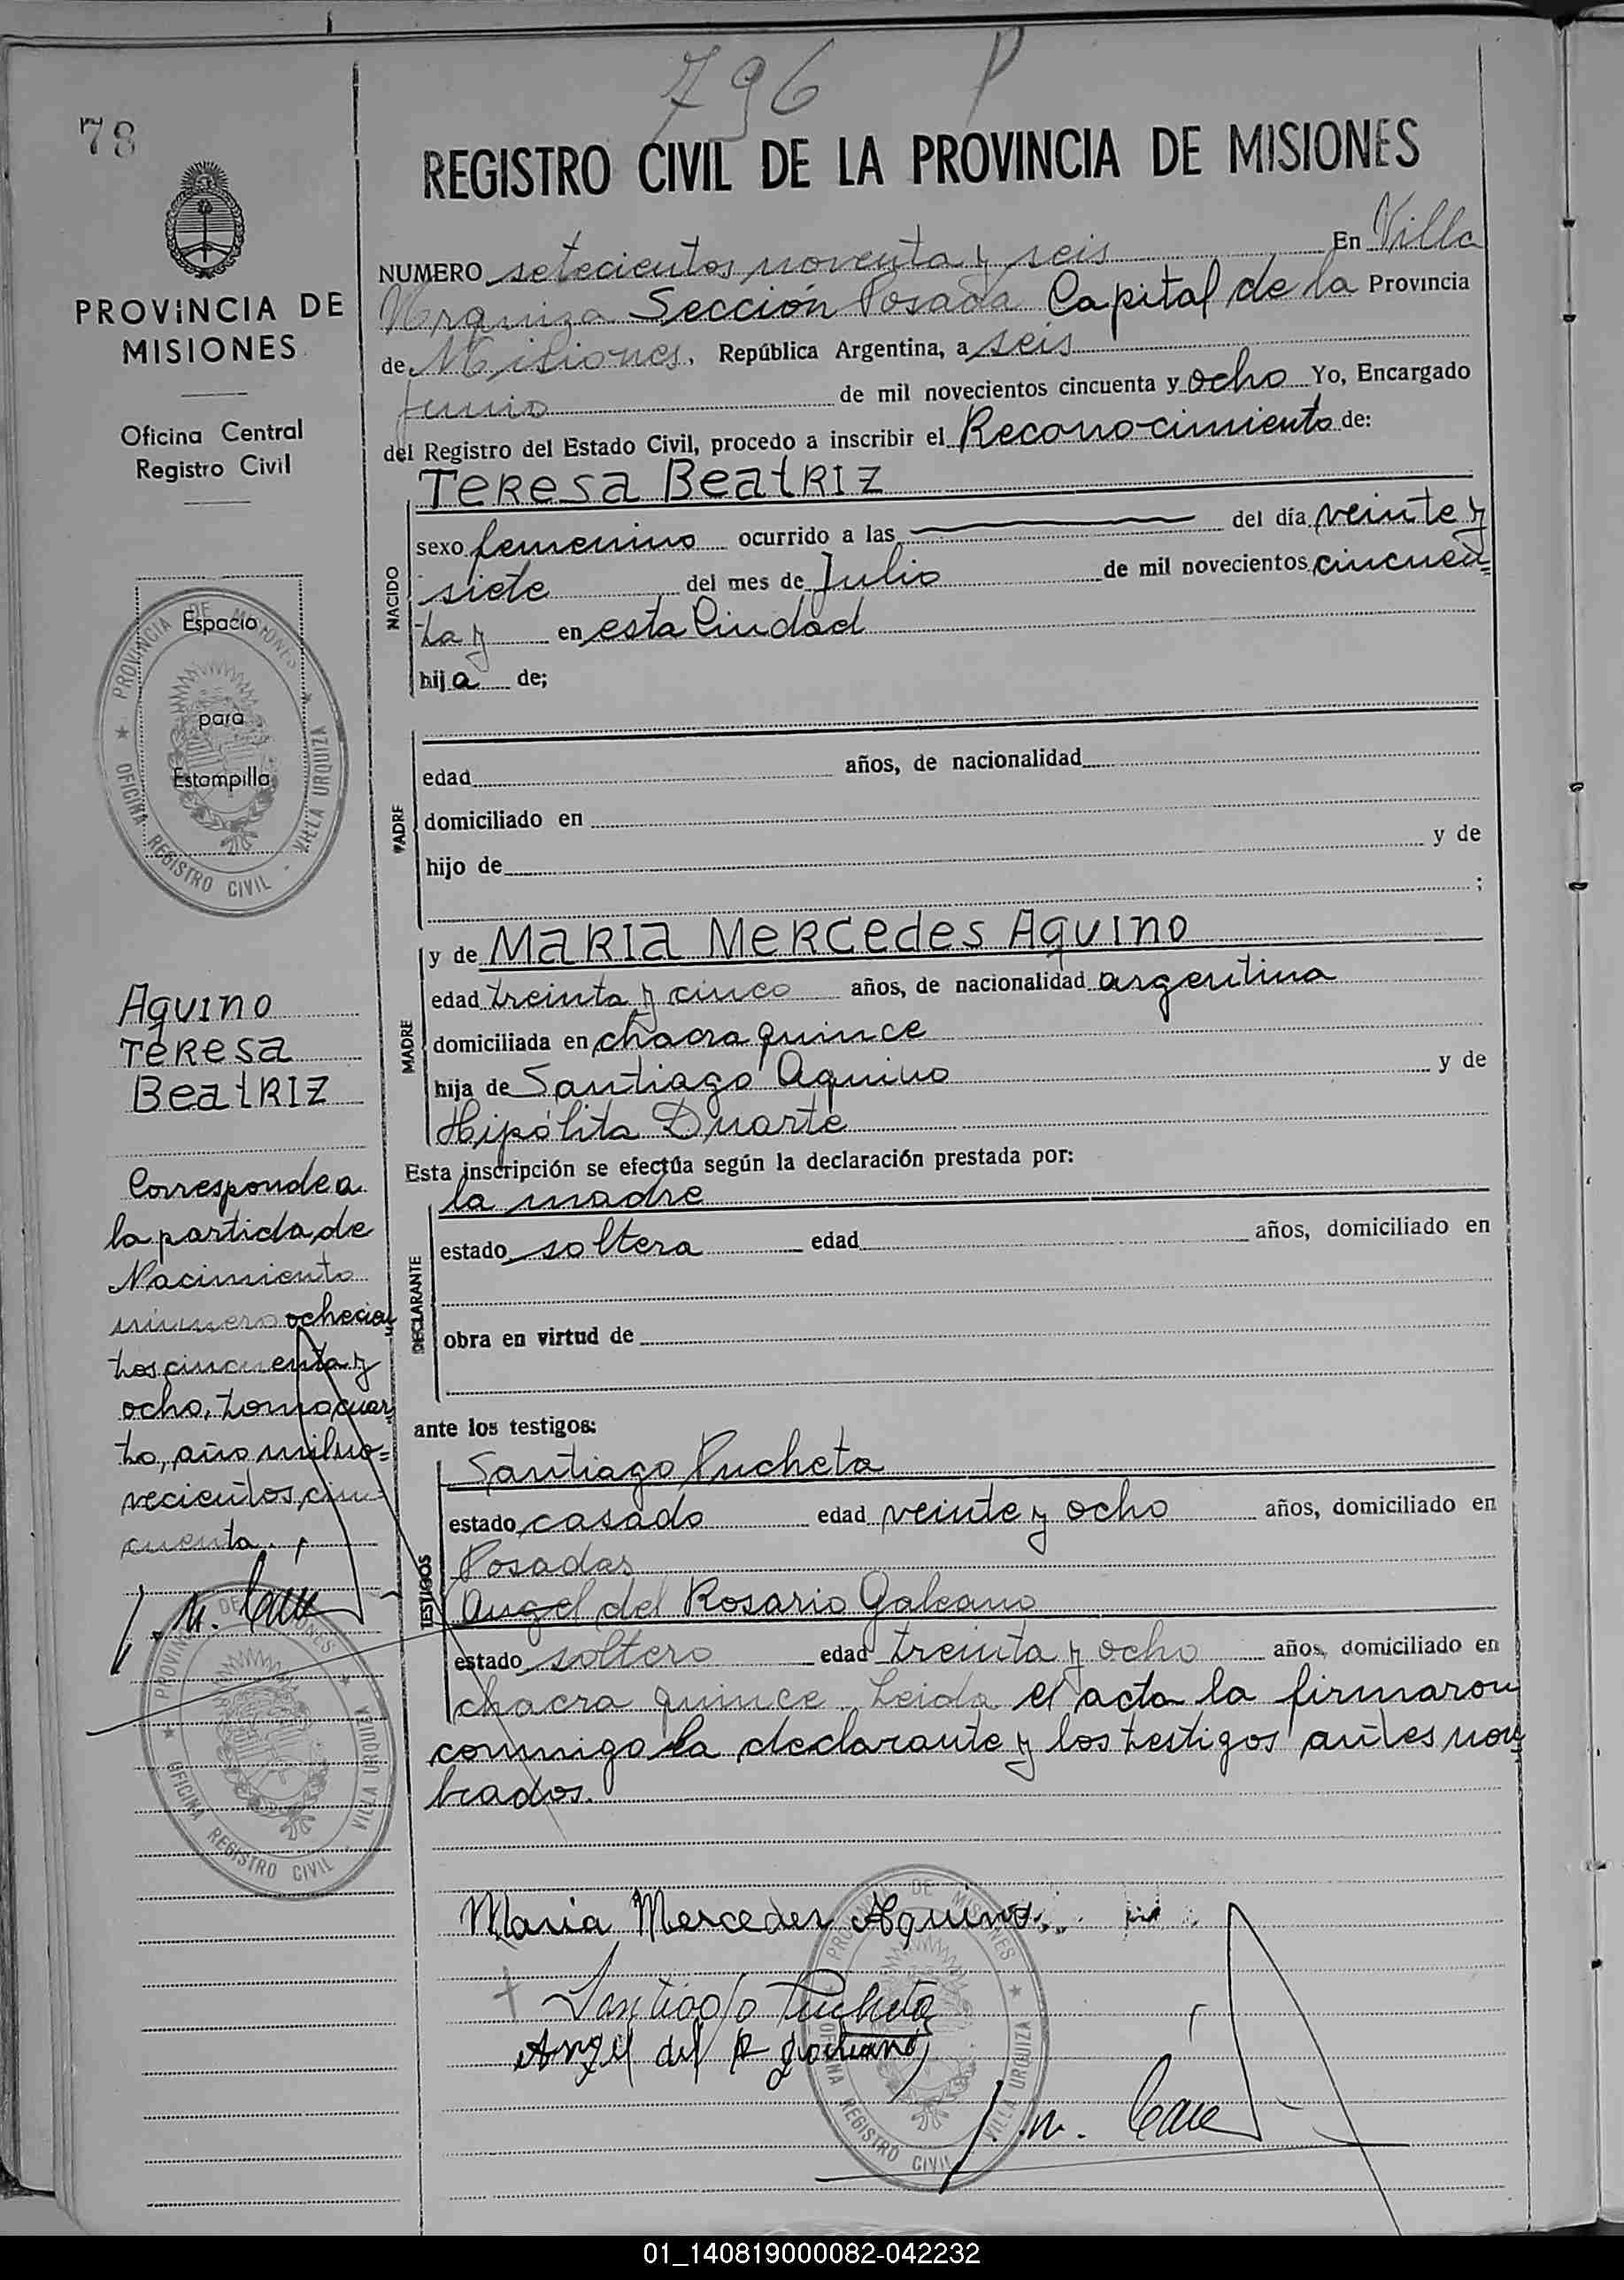 796 P
78
REGISTRO CIVIL DE LA PROVINCIA DE MISIONES
NUMERO setecientos noventa y seis En Villa
Urquiza Sección Posada Capital de la Provincia
de Misiones, República Argentina, a seis
Junio de mil novecientos cincuenta y ocho Yo, Encargado
del Registro del Estado Civil, procedo a inscribir el Reconocimiento de:
Teresa Beatriz
NACIDO
sexo femenino ocurrido a las del día veinte y
siete del mes de Julio de mil novecientos cincuen=
ta y en esta Ciudad
hija de;
PADRE
edad años, de nacionalidad
domiciliado en
hijo de y de
;
MADRE
y de Maria Mercedes Aquino
edad treinta y cinco años, de nacionalidad argentina
domiciliada en chacra quince
hija de Santiago Aquino y de
Hipólita Duarte
Esta inscripción se efectúa según la declaración prestada por:
la madre
DECLARANTE
estado soltera edad años, domiciliado en
obra en virtud de
ante los testigos:
TESTIGOS
Santiago Pucheta
estado casado edad veinte y ocho años, domiciliado en
Posadas
Angel del Rosario Galeano
estado soltero edad treinta y ocho años, domiciliado en
chacra quince. Leida el acta la firmaron
conmigo la declarante y los testigos antes nom=
brados.
Maria Mercedes Aquino
Santiago Pucheta
Angel del R Galeano
PROVINCIA DE
MISIONES
Oficina Central
Registro Civil
Espacio
para
Estampilla
PROVINCIA DE MISIONES
OFICINA REGISTRO CIVIL - VILLA URQUIZA
Aquino
Teresa
Beatriz
Corresponde a
la partida de
Nacimiento
número ochocien
tos cincuenta y
ocho, tomo cuar
to, año mil no=
vecientos cin=
cuenta.
PROVINCIA DE MISIONES
OFICINA REGISTRO CIVIL VILLA URQUIZA
PROVINCIA DE MISIONES
OFICINA REGISTRO CIVIL VILLA URQUIZA
01_140819000082-042232